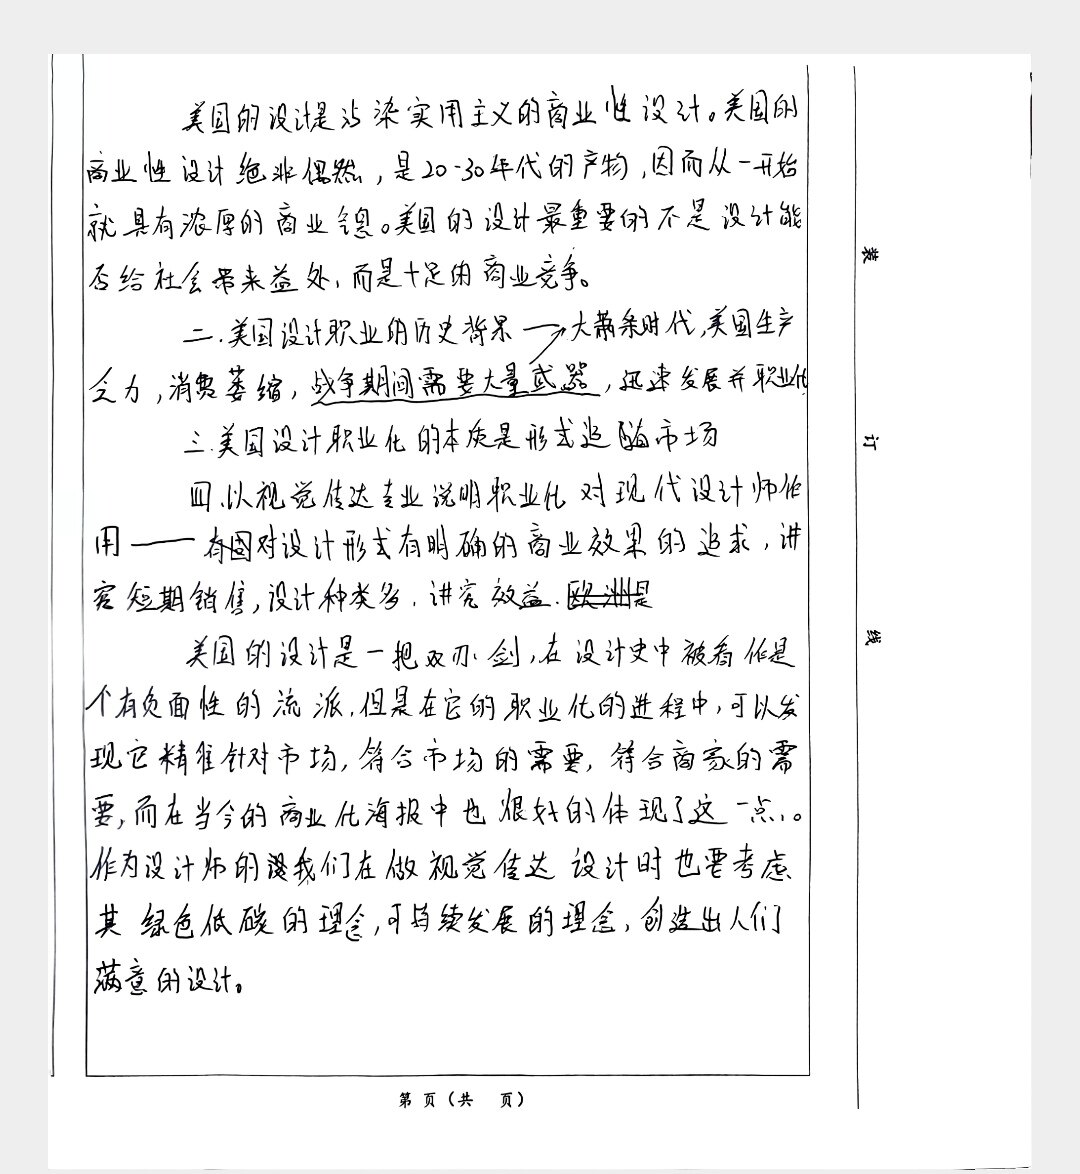 美国的设计是沾染实用主义的商业性设计。美国的
商业性设计绝非偶然，是20-30年代的产物，因而从一开始
就具有浓厚的商业气息。美国的设计最重要的不是设计能
否给社会带来益处，而是十足的商业竞争。
二.美国设计职业的历史背景 → 大萧条时代，美国生产
乏力，消费萎缩，战争期间需要大量武器，迅速发展并职业化
三.美国设计职业化的本质是形式追随市场
四.以视觉传达专业说明职业化对现代设计师作
用——对设计形式有明确的商业效果的追求，讲
究短期销售，设计种类多.讲究效益.
美国的设计是一把双刃剑，在设计史中被看作是
个有负面性的流派，但是在它的职业化的进程中，可以发
现它精准针对市场，符合市场的需要，符合商家的需
要，而在当今的商业化海报中也很好的体现了这一点。
作为设计师的我们在做视觉传达设计时也要考虑
其绿色低碳的理念，可持续发展的理念，创造出人们
满意的设计。
装
订
线
第 页（共 页）